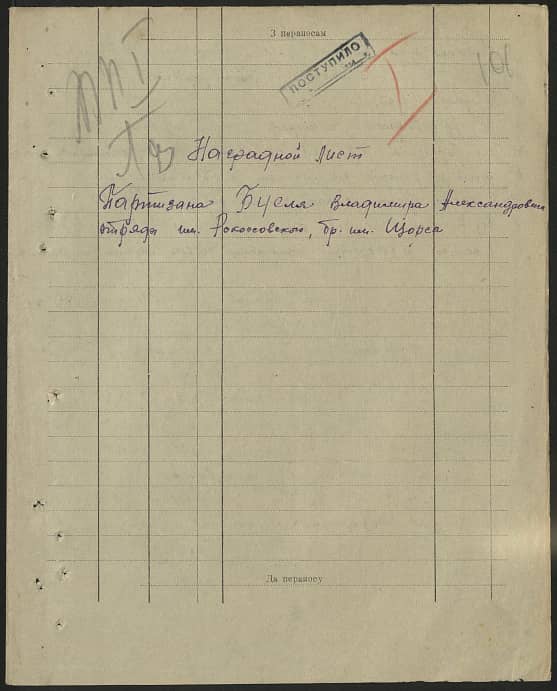 З пераносам
ПОСТУПИЛО
101
ППГ
Наградной Лист
Партизана Буеля Владимира Александровича
отряда им. Рокоссовского, бр. им. Щорса
Да пераносу